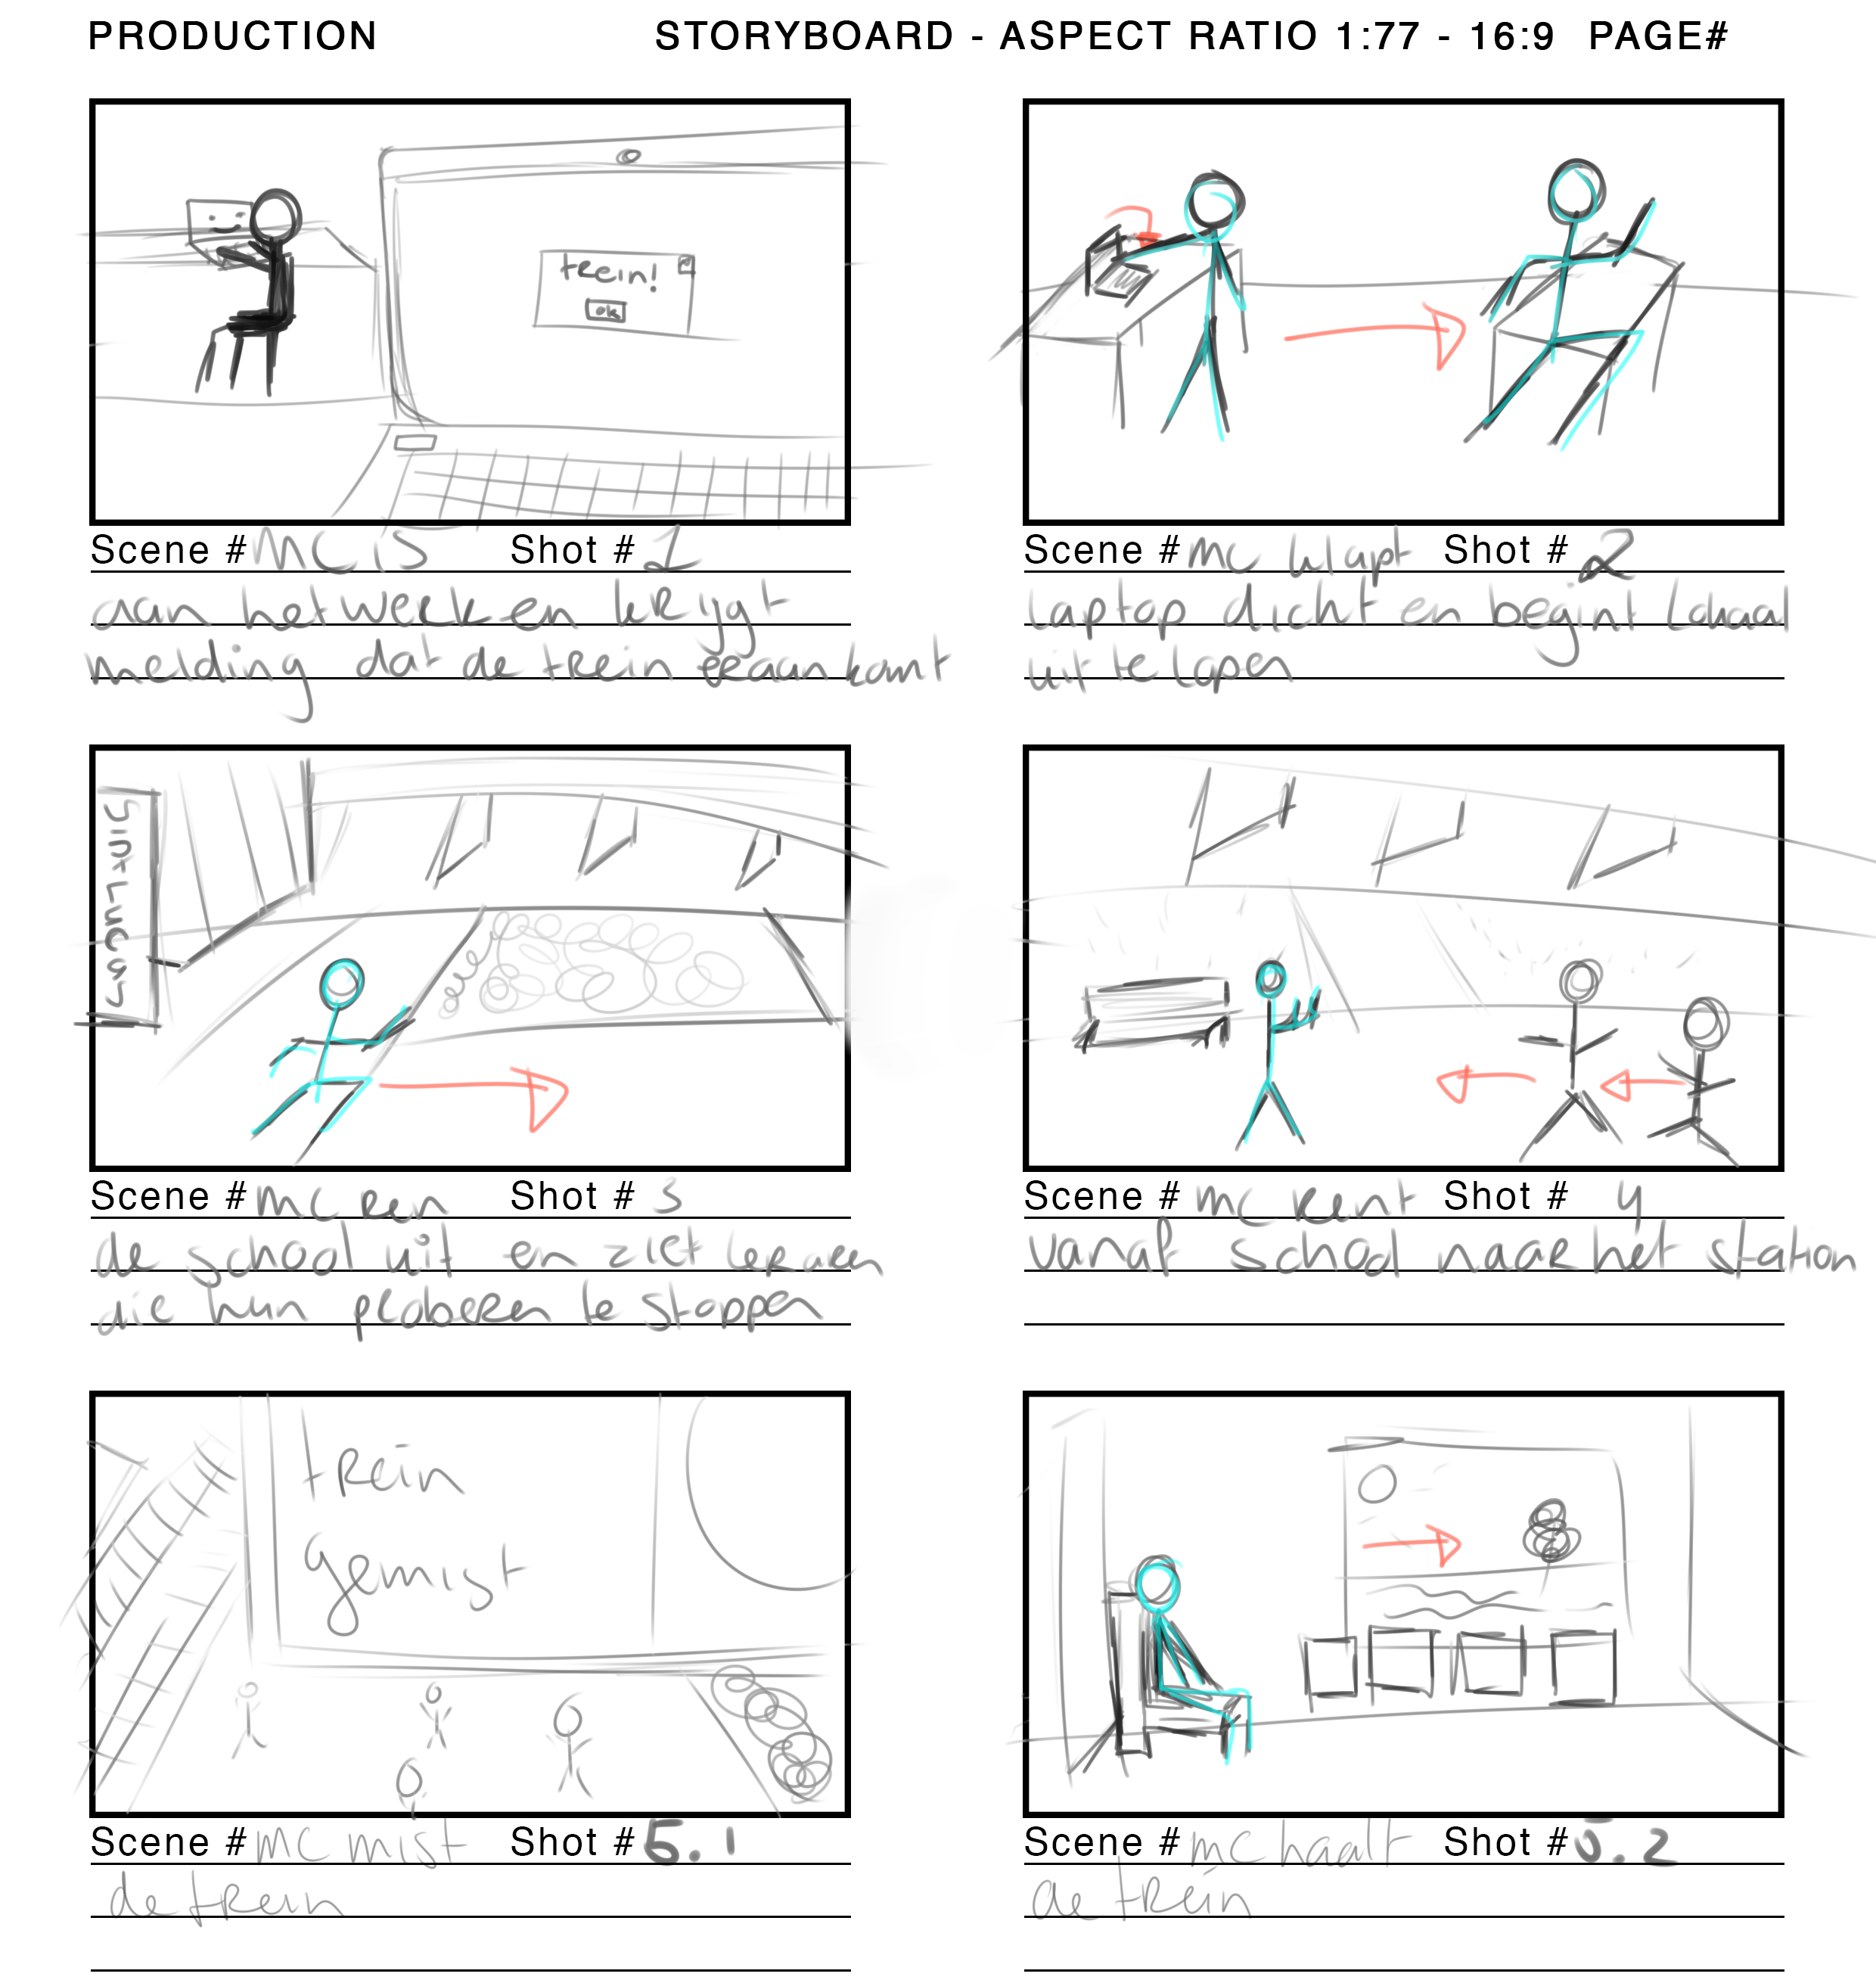 PRODUCTION STORYBOARD - ASPECT RATIO 1:77 - 16:9 PAGE#
trein!
ok
Scene # MC is Shot # 1
aan het werk en krijgt
melding dat de trein eraan komt
Scene # mc klapt Shot # 2
laptop dicht en begint lokaal
uit te lopen
Sint Lucas
Scene # mc ren Shot # 3
de school uit en ziet leraren
die hun proberen te stoppen
Scene # mc rent Shot # 4
vanaf school naar het station
trein
gemist
Scene # mc mist Shot # 5.1
de trein
Scene # mc haalt Shot # 5.2
de trein